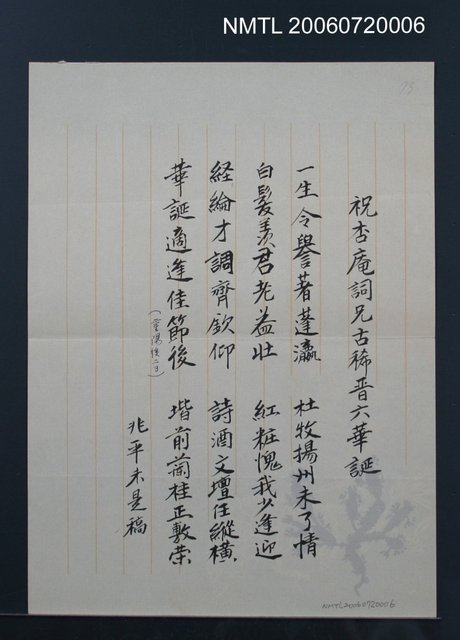 NMTL 20060720006
73
祝杏庵詞兄古稀晋六華誕
一生令譽著蓬瀛 杜牧揚州未了情
白髮羨君老益壯 紅粧愧我少逢迎
経綸才調齊欽仰 詩酒文壇任縱橫
華誕適逢佳節後 堦前蘭桂正敷荣
(重陽後二日)
兆平未是稿
NMTL20060720006